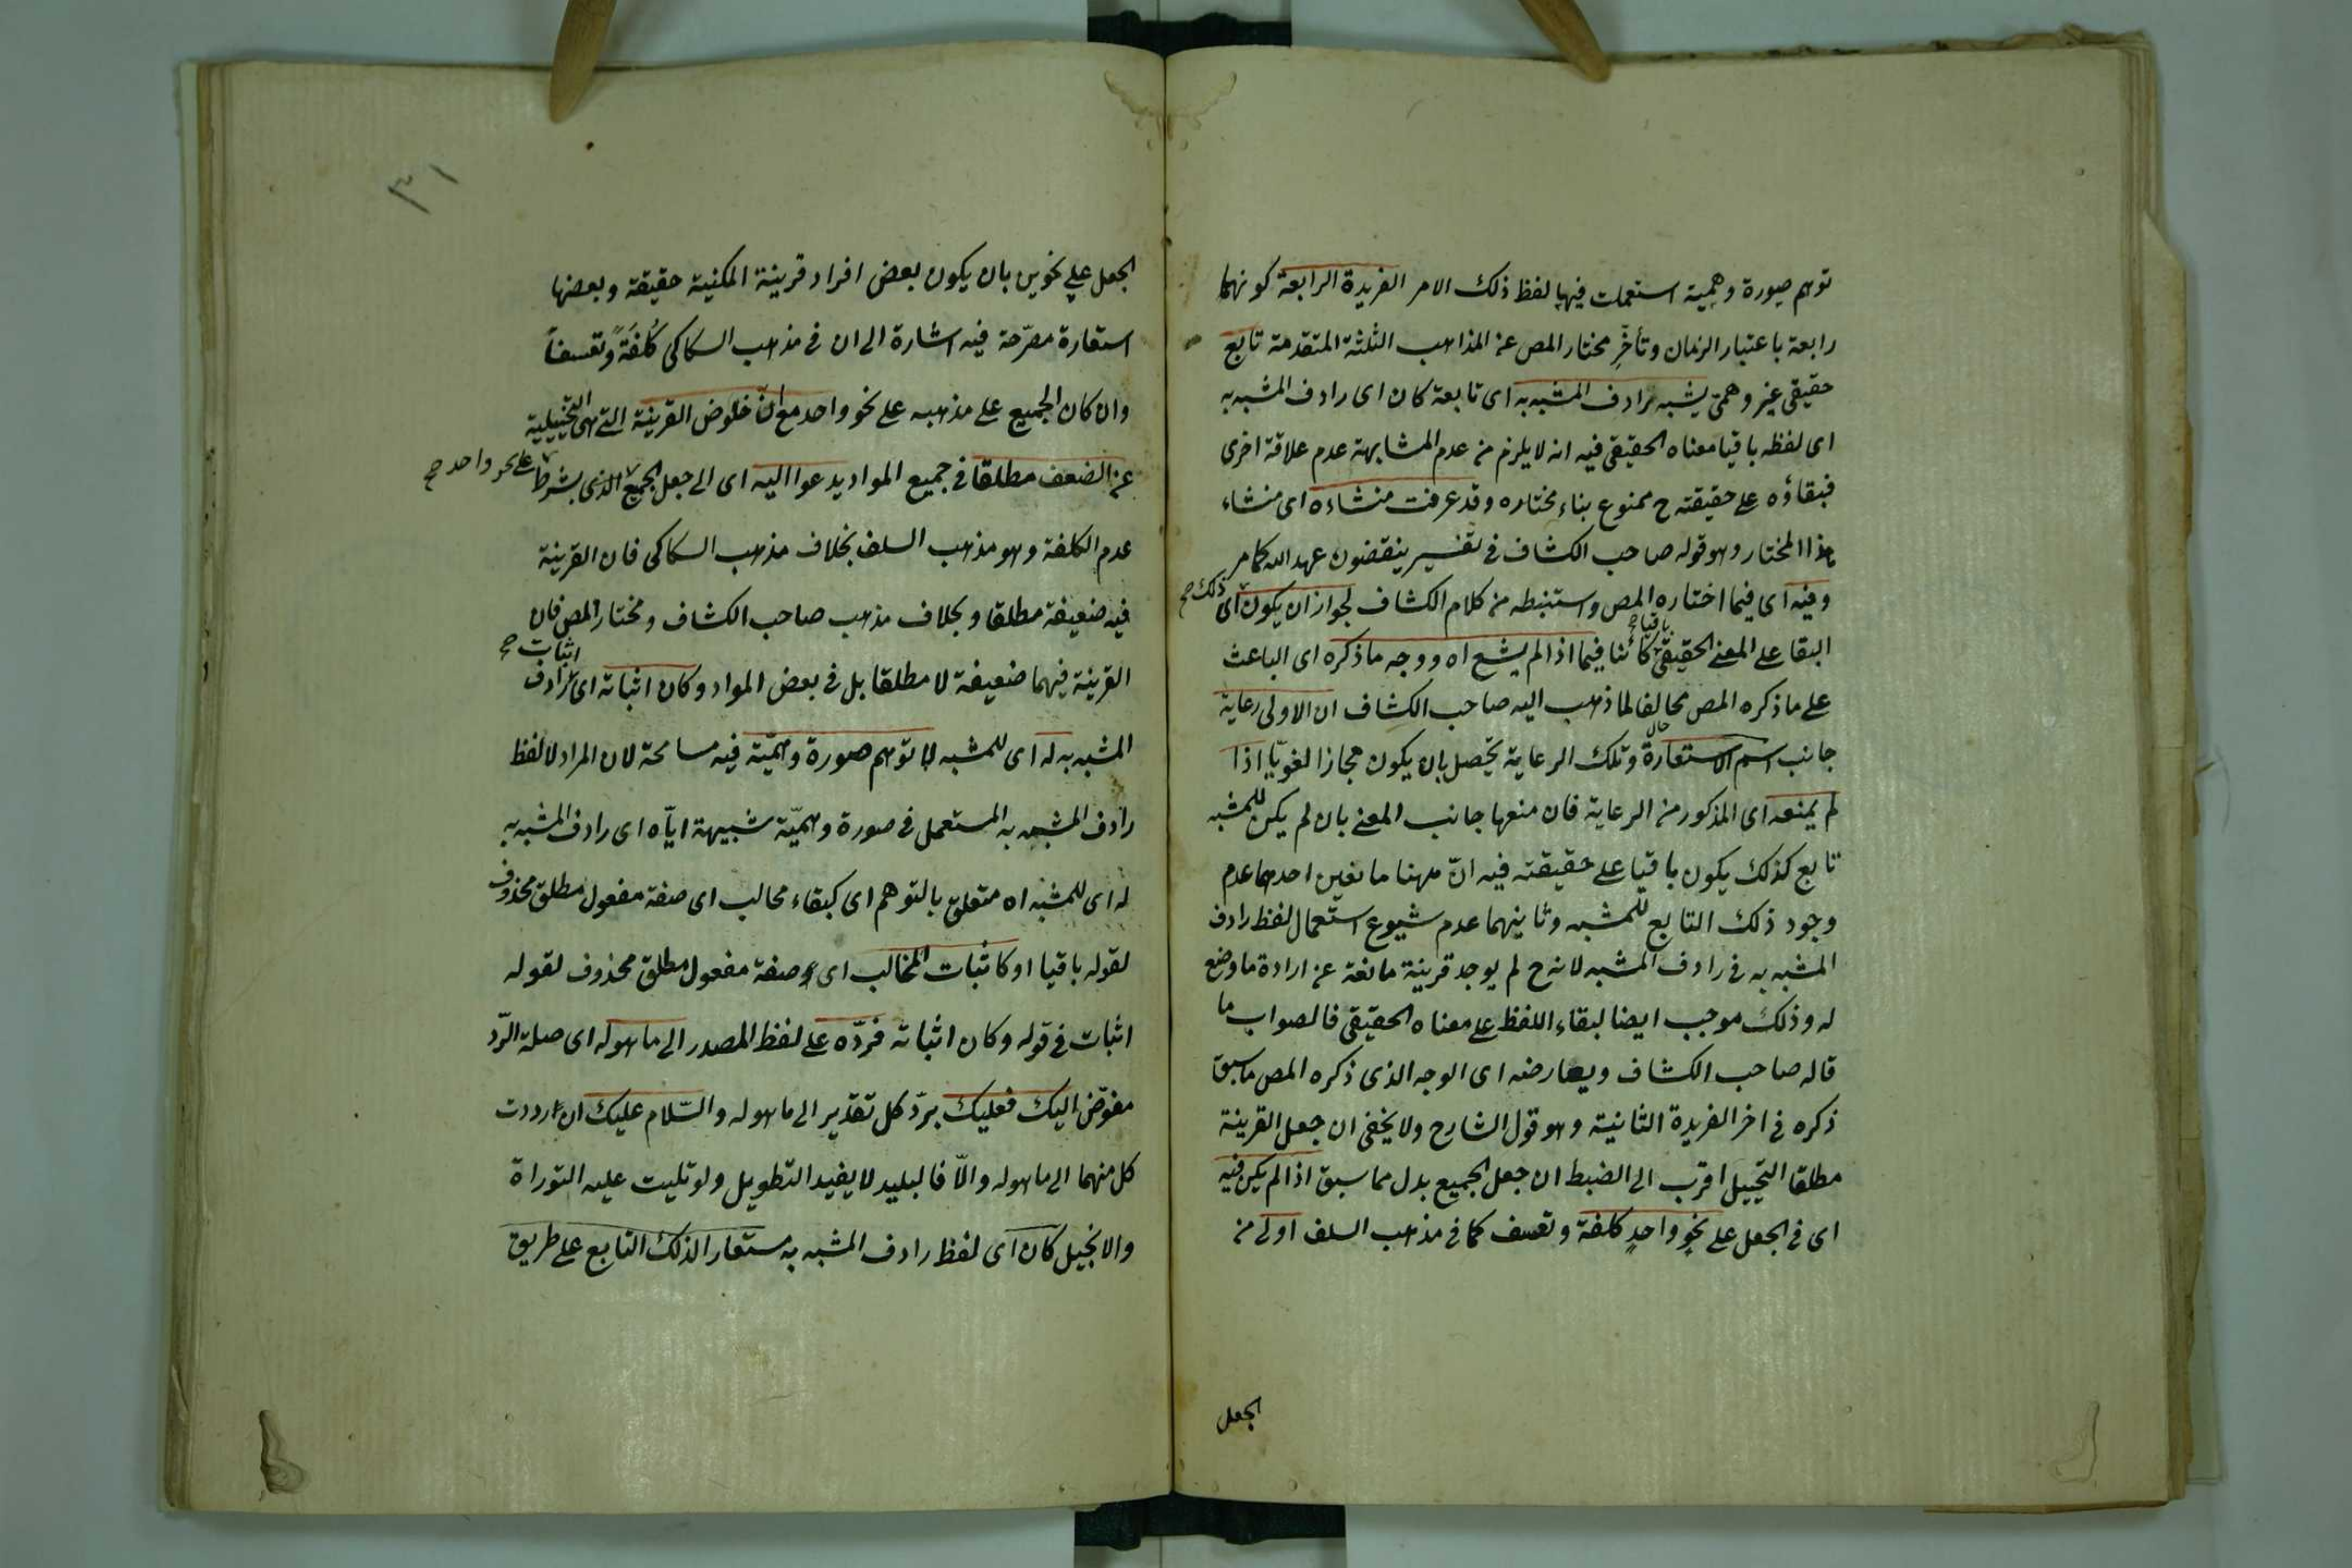 توهم صورة وهمية استعملت فيها لفظ ذلك الامر الفريدة الرابعة كونهما
رابعة باعتبار الزمان وتأخر مختار المص عن المذاهب الثلثة المتقدمة تابع
حقيقى غير وهمى يشبه رادف المشبه به اى تابعة كان اى رادف المشبه به
اى لفظه باقيا معناه الحقيقى فيه انه لا يلزم من عدم المشابهة عدم علاقة اخرى
فبقاؤه على حقيقته ح ممنوع بناء مختاره وقد عرفت منشاءه اى منشاء
هذا المختار وهو قوله صاحب الكشاف فى تفسير ينقضون عهد الله كما مر
وفيه اى فيما اختاره المص واستنبطه من كلام الكشاف لجواز ان يكون اى ذلك صح
البقا على المعنى الحقيقى باقيا صح كائنا فيما اذا لم يشع اه ووجه ما ذكره اى الباعث
على ما ذكره المص مخالفا لما ذهب اليه صاحب الكشاف ان الاولى رعاية
جانب اسم الاستعارة وتلك الرعاية تحصل بان يكون مجازا لغويا اذا
لم يمنعه اى المذكور من الرعاية فان منعها جانب المعنى بان لم يكن للمشبه
تابع كذلك يكون باقيا على حقيقته فيه ان ههنا مانعين احدهما عدم
وجود ذلك التابع للمشبه وثانيهما عدم شيوع استعمال لفظ رادف
المشبه به فى رادف المشبه لانه ح لم يوجد قرينة مانعة عن ارادة ما وضع
له وذلك موجب ايضا لبقاء اللفظ على معناه الحقيقى فالصواب ما
قاله صاحب الكشاف ويعارضه اى الوجه الذى ذكره المص ما سبق
ذكره فى اخر الفريدة الثانية وهو قول الشارح ولا يخفى ان جعل القرينة
مطلقا التخييل اقرب الى الضبط ان جعل الجميع بدل مما سبق اذا لم يكن فيه
اى فى الجعل على نحوٍ واحدٍ كلفة وتعسف كما فى مذهب السلف اولى من
الجعل
٣١
الجعل على نحوين بان يكون بعض افراد قرينة المكنية حقيقة وبعضها
استعارة مصرّحة فيه اشارة الى ان فى مذهب السكاكى كُلفَةً وتعسفاً
وان كان الجميع على مذهبه على نحو واحد مع انّ خلوص القرينة التى هى التخييلية
عن الضعف مطلقا فى جميع المواد يدعوا اليه اى الى جعل الجميع الذى بشرط على نحو واحد صح
عدم الكلفة وهو مذهب السلف بخلاف مذهب السكاكى فان القرينة
فيه ضعيفة مطلقا وبخلاف مذهب صاحب الكشاف ومختار المص فان
القرينة فيهما ضعيفة لا مطلقا بل فى بعض المواد وكان اثباته اى اثبات صح رادف
المشبه به له اى للمشبه لا توهم صورة وهميّة فيه مسامحة لان المراد لا لفظ
رادف المشبه به المستعمل فى صورة وهميّة شبيهة ايّاه اى رادف المشبه به
له اى للمشبه اه متعلق بالتوهم اى كبقاء مخالب اى صفة مفعول مطلق محذوف
لقوله باقيا او كاثبات المخالب اى صفة مفعول مطلق محذوف لقوله
اثبات فى قوله وكان اثباته فردّه على لفظ المصدر الى ما هو له اى صلة الرّد
مفوّض اليك فعليك بردّ كل تقدير الى ما هو له والسّلام عليك ان رددت
كل منهما الى ما هو له والّا فالبليد لا يفيد التطويل ولو تليت عليه التوراة
والانجيل كان اى لفظ رادف المشبه به مستعارا لذلك التابع على طريق